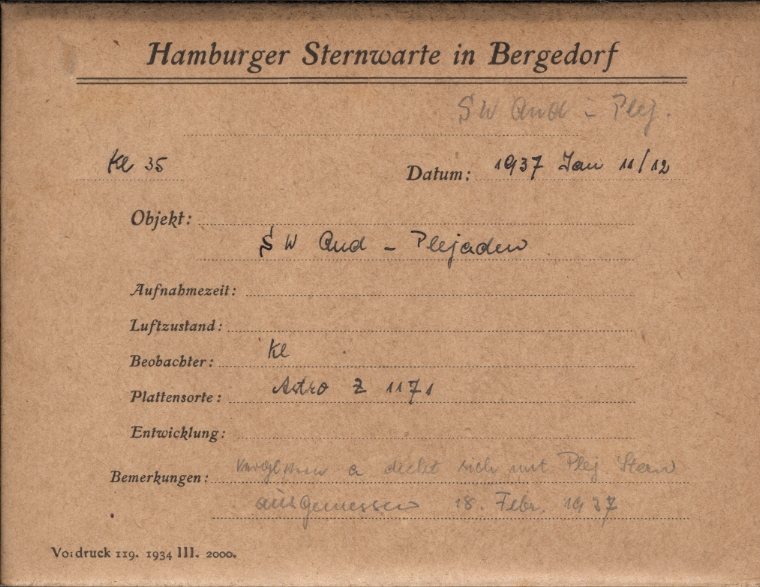 Hamburger Sternwarte in Bergedorf
SW And - Plej.
Kl 35
Datum: 1937 Jan 11/12
Objekt:
SW And - Plejaden
Aufnahmezeit:
Luftzustand:
Beobachter: Kl
Plattensorte: Astro Z 1171
Entwicklung:
Bemerkungen: a deckt sich mit Plej Stern
ausgemessen 18. Febr. 1937
Vordruck 119. 1934 III. 2000.